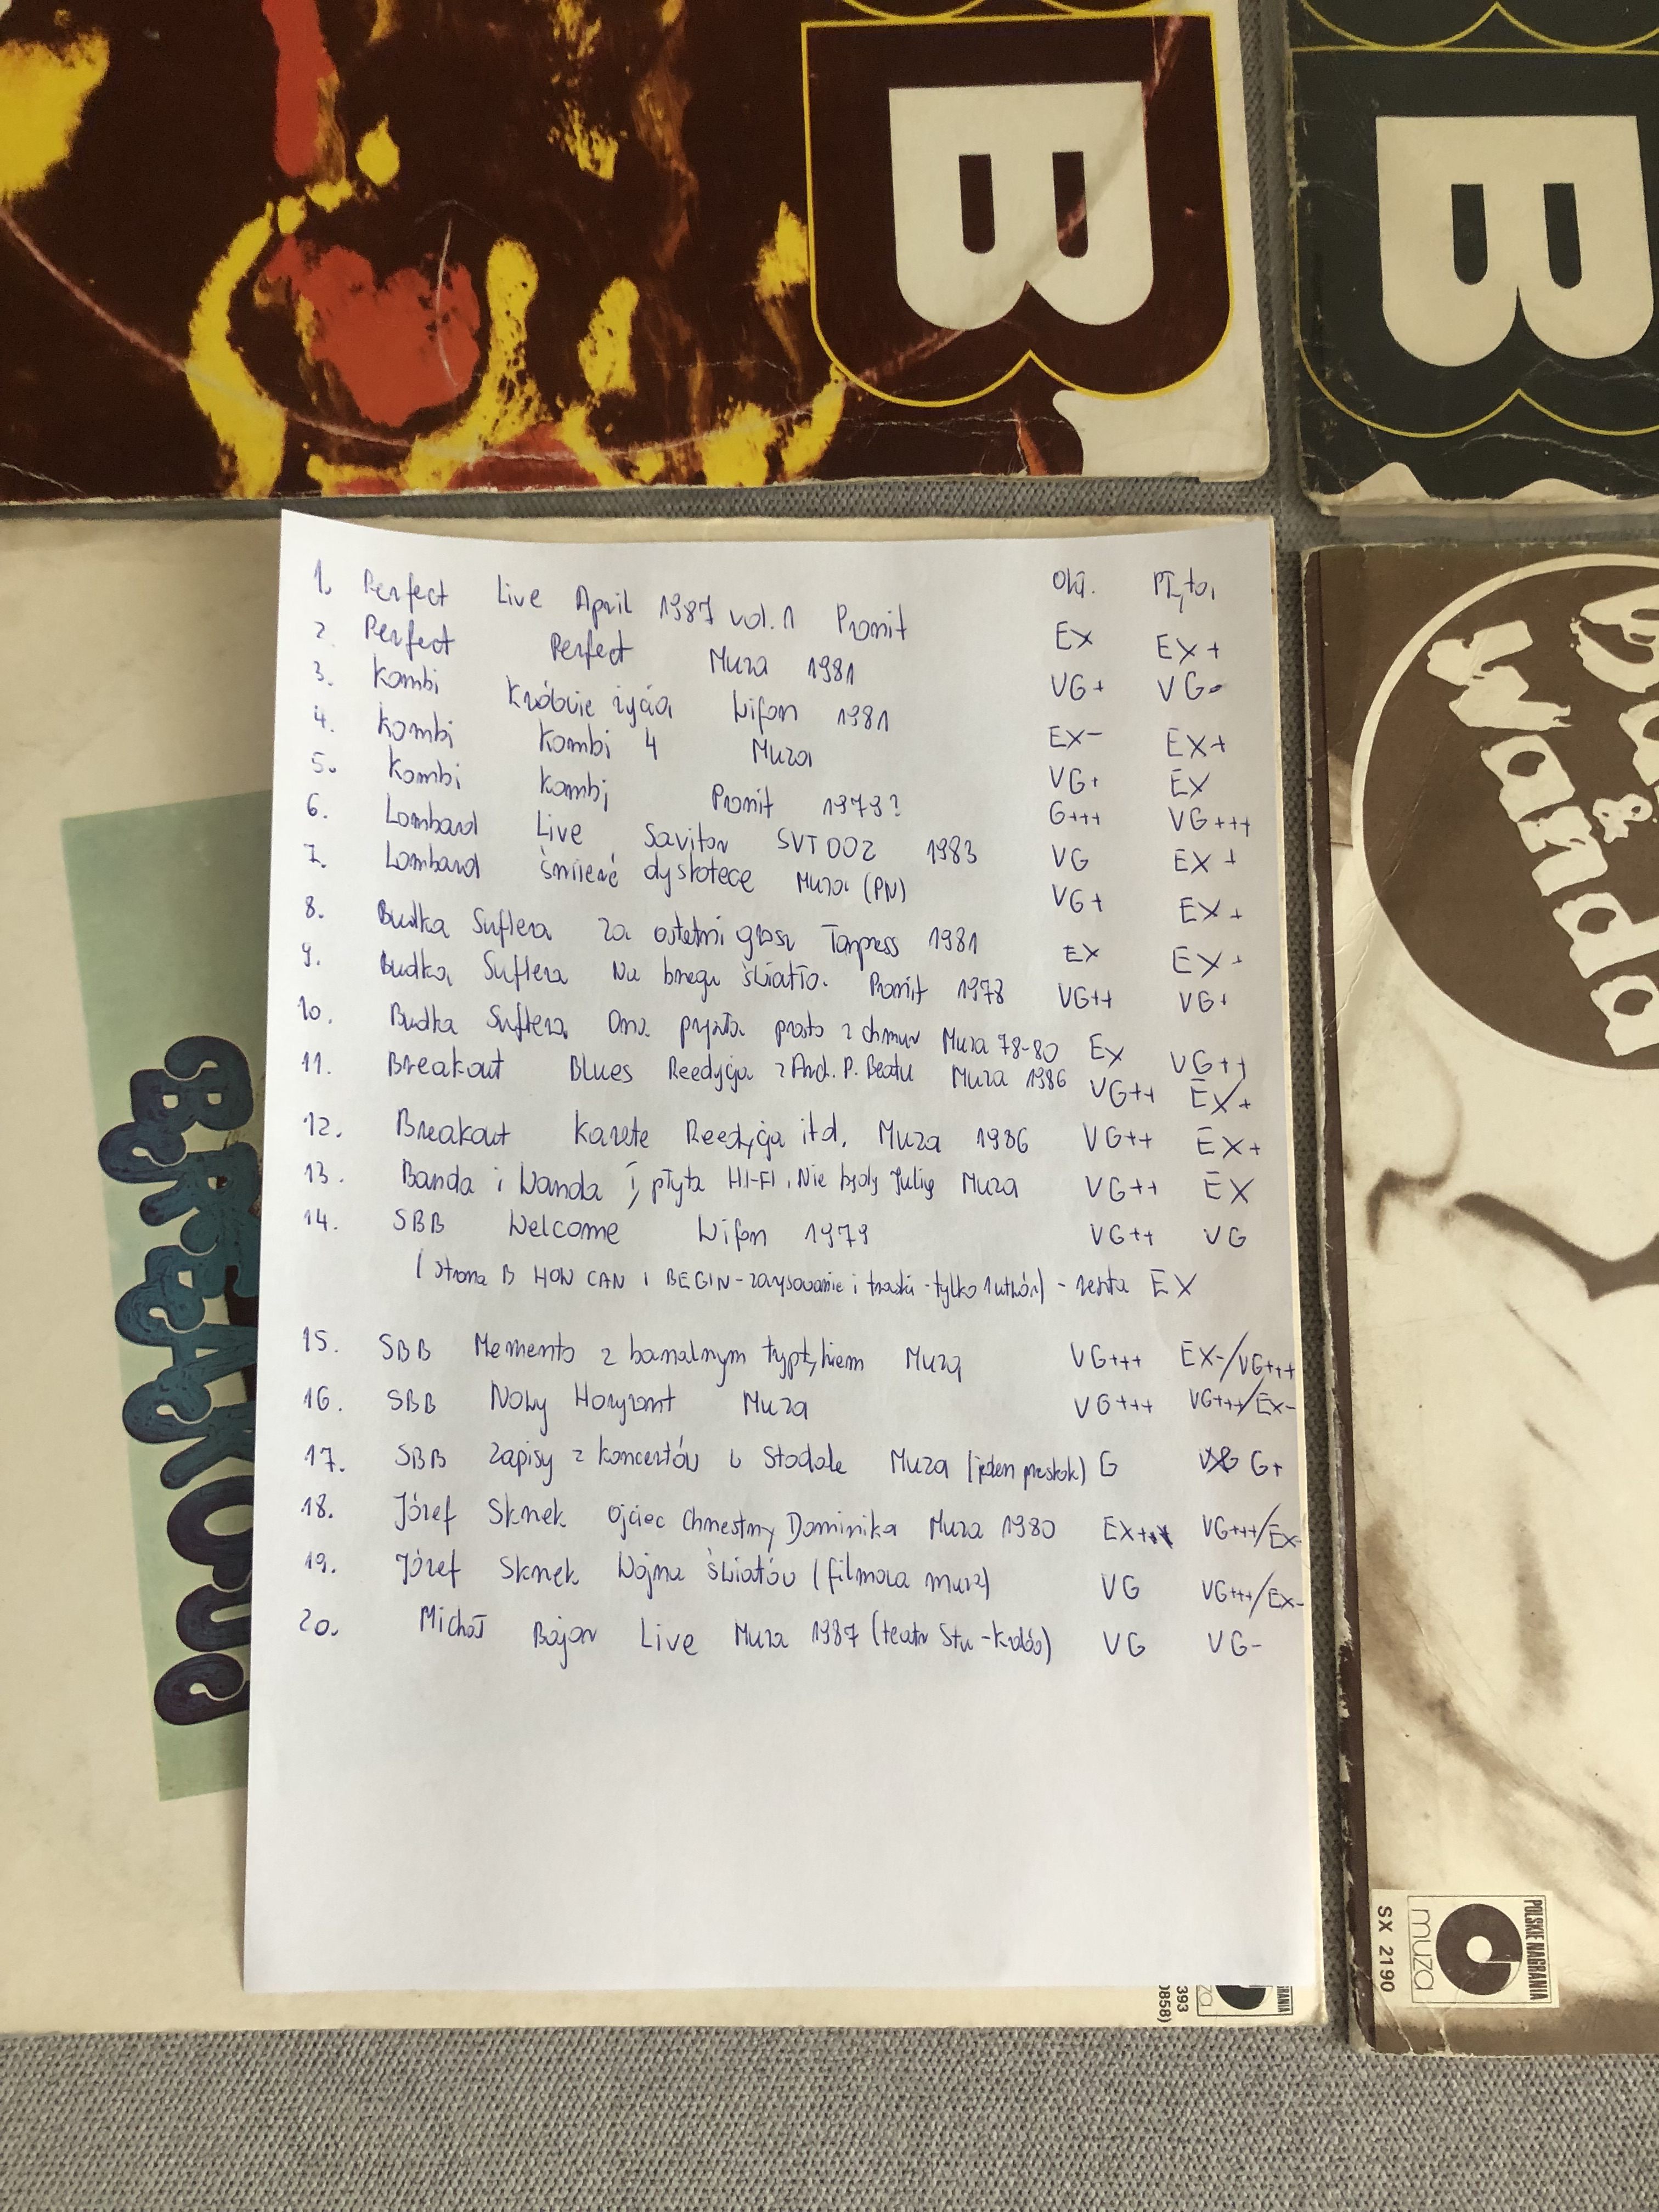 B
B
Okł. Płyta
1. Perfect Live April 1987 vol. 1 Pronit EX EX+
2. Perfect Perfect Muza 1981 VG+ VG-
3. Kombi Królowie życia Wifon 1981 EX- EX+
4. Kombi Kombi 4 Muza VG+ EX
5. Kombi Kombi Pronit 1979? G+++ VG+++
6. Lombard Live Savitor SVT 002 1983 VG EX+
7. Lombard Śmierć dyskotece Muza (PN) VG+ EX+
8. Budka Suflera Za ostatni grosz Tonpress 1981 EX EX-
9. Budka Suflera Na brzegu światła. Pronit 1978 VG++ VG+
10. Budka Suflera Ona przyszła prosto z chmur Muza 78-80 EX VG++
11. Breakout Blues Reedycja z Arch. P. Beatu Muza 1986 VG++ EX+
12. Breakout Karate Reedycja itd. Muza 1986 VG++ EX+
13. Banda i Wanda I płyta HI-FI, Nie będę Julią Muza VG++ EX
14. SBB Welcome Wifon 1979 VG++ VG
(strona B HOW CAN I BEGIN - zarysowanie i trzaski - tylko 1 utwór) - reszta EX
15. SBB Memento z banalnym tryptykiem Muza VG+++ EX-/VG+++
16. SBB Nowy Horyzont Muza VG+++ VG+++/EX-
17. SBB Zapisy z koncertów w Stodole Muza (jeden przeskok) G G+
18. Józef Skrzek Ojciec Chrzestny Dominika Muza 1980 EX++ VG+++/EX-
19. Józef Skrzek Wojna Światów (filmowa muza) VG VG+++/EX-
20. Michał Bajor Live Muza 1987 (teatr Stu - Kraków) VG VG-
BREAKOUT
&
Wanda
393
0858)
POLSKIE NAGRANIA
muza
SX 2190